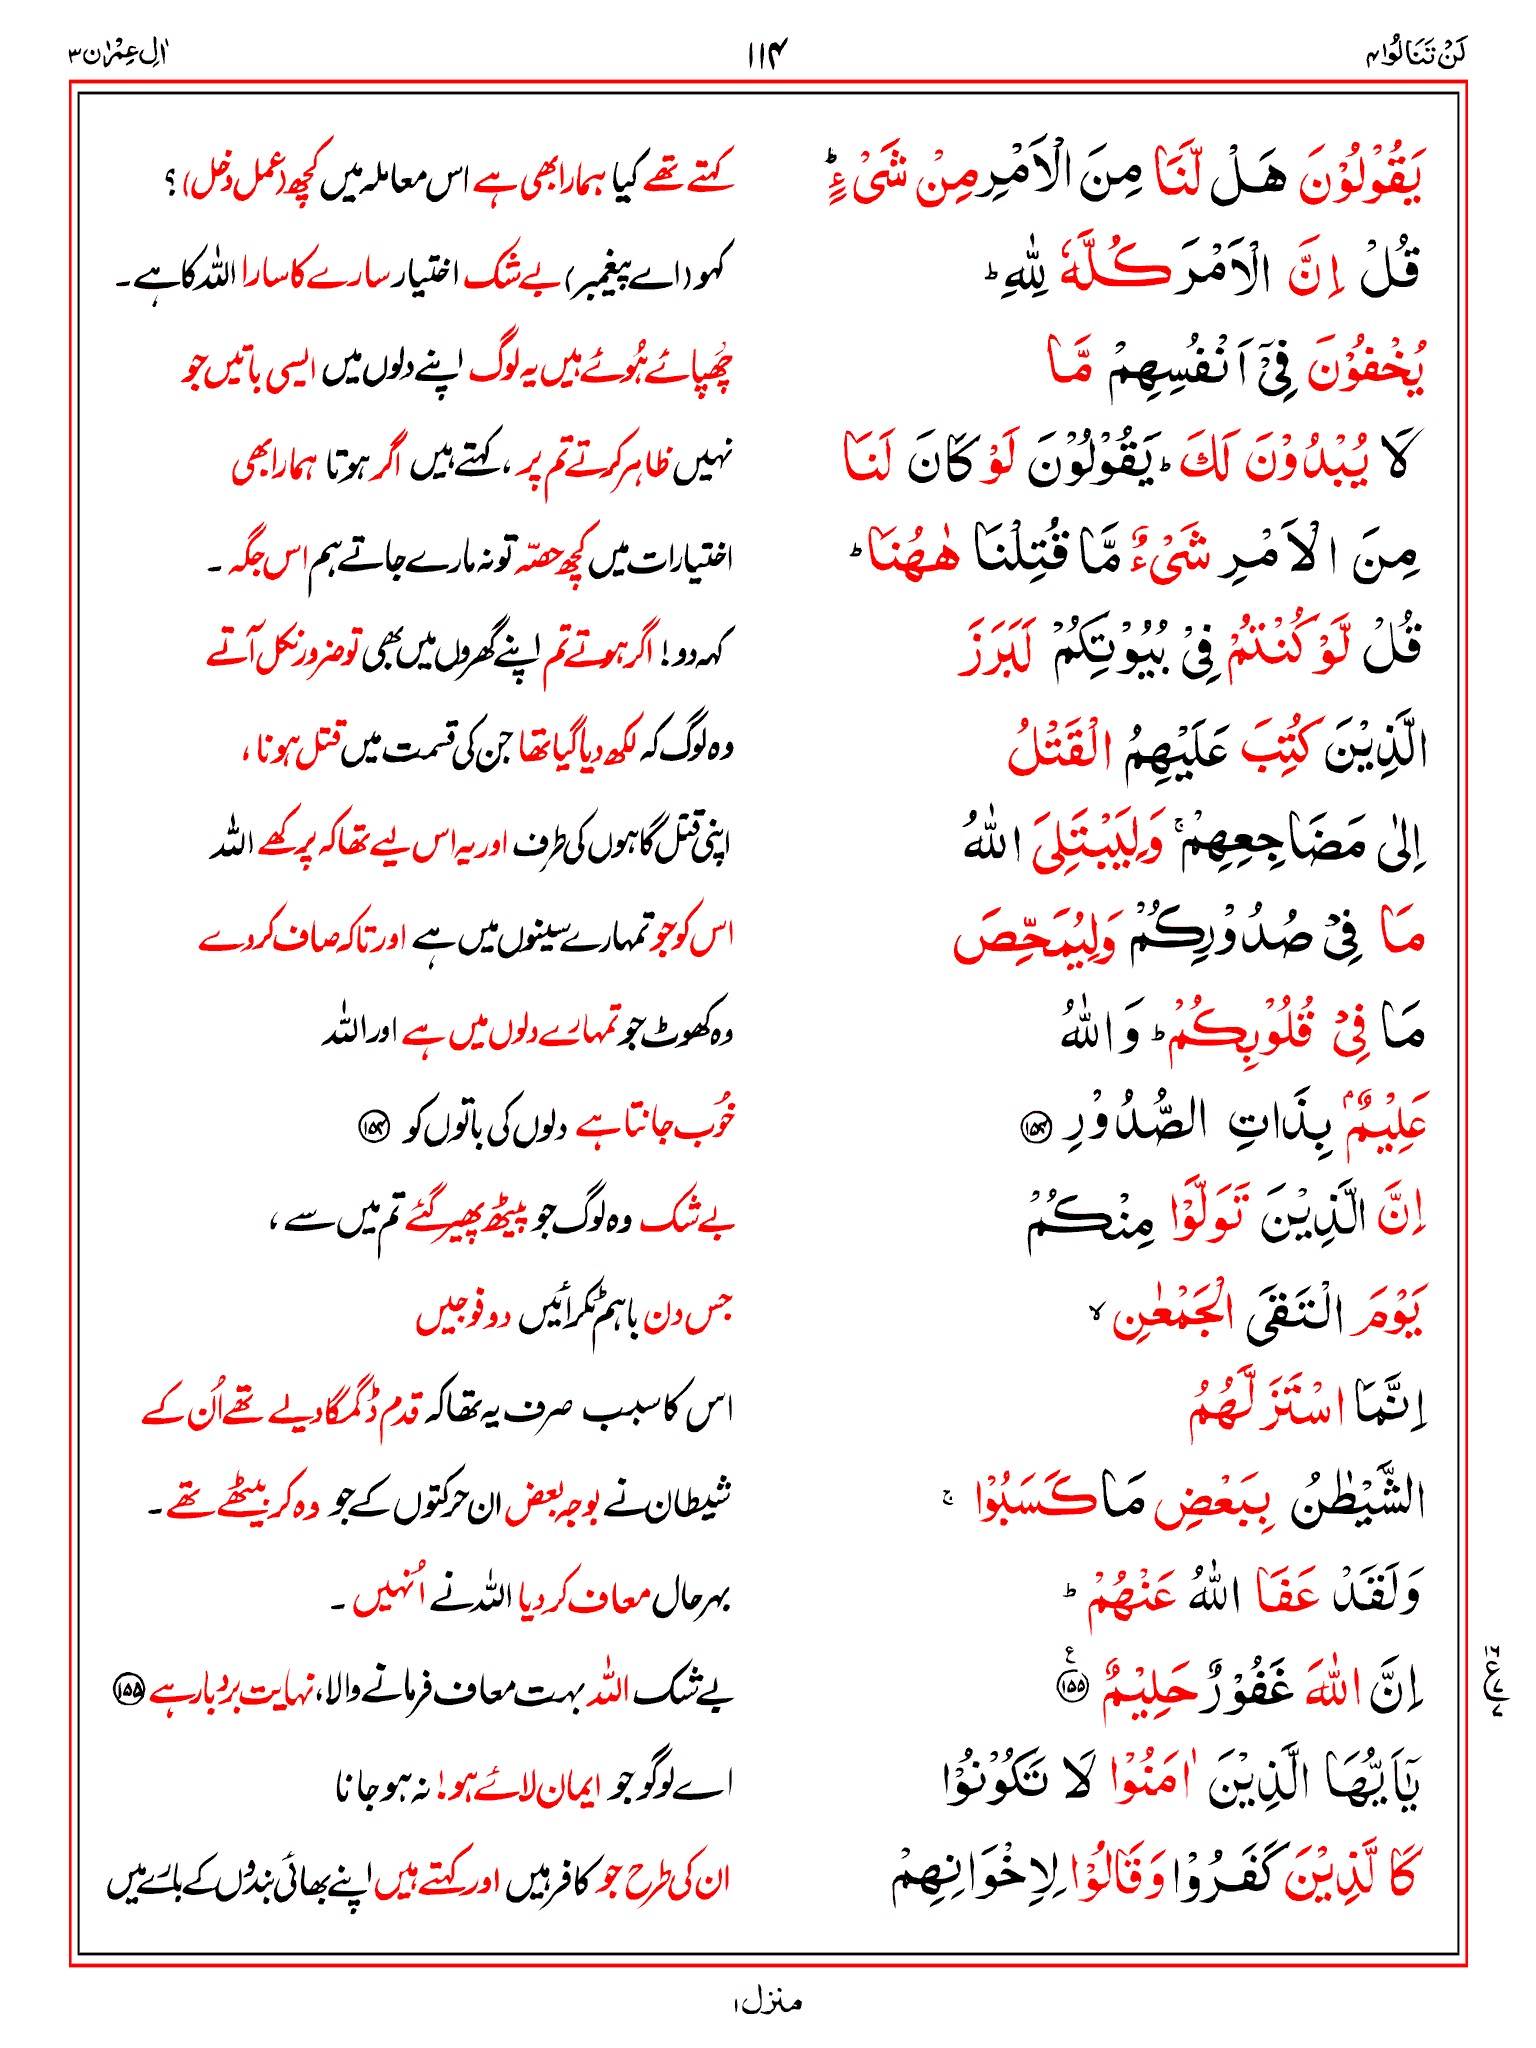 لَنْ تَنَالُوا۴
۱۱۴
اٰلِ عِمْرٰن۳
يَقُوْلُوْنَ هَلْ لَّنَا مِنَ الْاَمْرِ مِنْ شَىْءٍؕ
کہتے تھے کیا ہمارا بھی ہے اس معاملہ میں کچھ (عمل دخل) ؟
قُلْ اِنَّ الْاَمْرَ كُلَّهٗ لِلّٰهِؕ
کہو (اے پیغمبر) بے شک اختیار سارے کا سارا اللہ کا ہے۔
يُخْفُوْنَ فِىْۤ اَنْفُسِهِمْ مَّا
چھُپائے ہُوئے ہیں یہ لوگ اپنے دلوں میں ایسی باتیں جو
لَا يُبْدُوْنَ لَكَؕ يَقُوْلُوْنَ لَوْ كَانَ لَنَا
نہیں ظاہر کرتے تم پر ، کہتے ہیں اگر ہوتا ہمارا بھی
مِنَ الْاَمْرِ شَىْءٌ مَّا قُتِلْنَا هٰهُنَاؕ
اختیارات میں کچھ حصّہ تو نہ مارے جاتے ہم اس جگہ ۔
قُلْ لَّوْ كُنْتُمْ فِىْ بُيُوْتِكُمْ لَبَرَزَ
کہہ دو! اگر ہوتے تم اپنے گھروں میں بھی تو ضرور نکل آتے
الَّذِيْنَ كُتِبَ عَلَيْهِمُ الْقَتْلُ
وہ لوگ کہ لکھ دیا گیا تھا جن کی قسمت میں قتل ہونا ،
اِلٰى مَضَاجِعِهِمْۚ وَلِيَبْتَلِىَ اللّٰهُ
اپنی قتل گاہوں کی طرف اور یہ اس لیے تھا کہ پرکھے اللہ
مَا فِىْ صُدُوْرِكُمْ وَلِيُمَحِّصَ
اس کو جو تمہارے سینوں میں ہے اور تاکہ صاف کر دے
مَا فِىْ قُلُوْبِكُمْؕ وَاللّٰهُ
وہ کھوٹ جو تمہارے دلوں میں ہے اور اللہ
عَلِيْمٌۢ بِذَاتِ الصُّدُوْرِ ۱۵۴
خُوب جانتا ہے دلوں کی باتوں کو ۱۵۴
اِنَّ الَّذِيْنَ تَوَلَّوْا مِنْكُمْ
بے شک وہ لوگ جو پیٹھ پھیر گئے تم میں سے ،
يَوْمَ الْتَقَى الْجَمْعٰنِ ۙ
جس دن باہم ٹکرائیں دو فوجیں
اِنَّمَا اسْتَزَلَّهُمُ
اس کا سبب صرف یہ تھا کہ قدم ڈگمگا دیے تھے اُن کے
الشَّيْطٰنُ بِبَعْضِ مَا كَسَبُوْا ۚ
شیطان نے بوجہ بعض ان حرکتوں کے جو وہ کر بیٹھے تھے ۔
وَلَقَدْ عَفَا اللّٰهُ عَنْهُمْ ؕ
بہرحال معاف کر دیا اللہ نے اُنہیں ۔
اِنَّ اللّٰهَ غَفُوْرٌ حَلِيْمٌ ۱۵۵ ع
بے شک اللہ بہت معاف فرمانے والا، نہایت بردبار ہے ۱۵۵
۱۶
ع
۷
يٰۤاَيُّهَا الَّذِيْنَ اٰمَنُوْا لَا تَكُوْنُوْا
اے لوگو جو ایمان لائے ہو! نہ ہو جانا
كَالَّذِيْنَ كَفَرُوْا وَقَالُوْا لِاِخْوَانِهِمْ
ان کی طرح جو کافر ہیں اور کہتے ہیں اپنے بھائی بندوں کے بارے میں
منزل۱